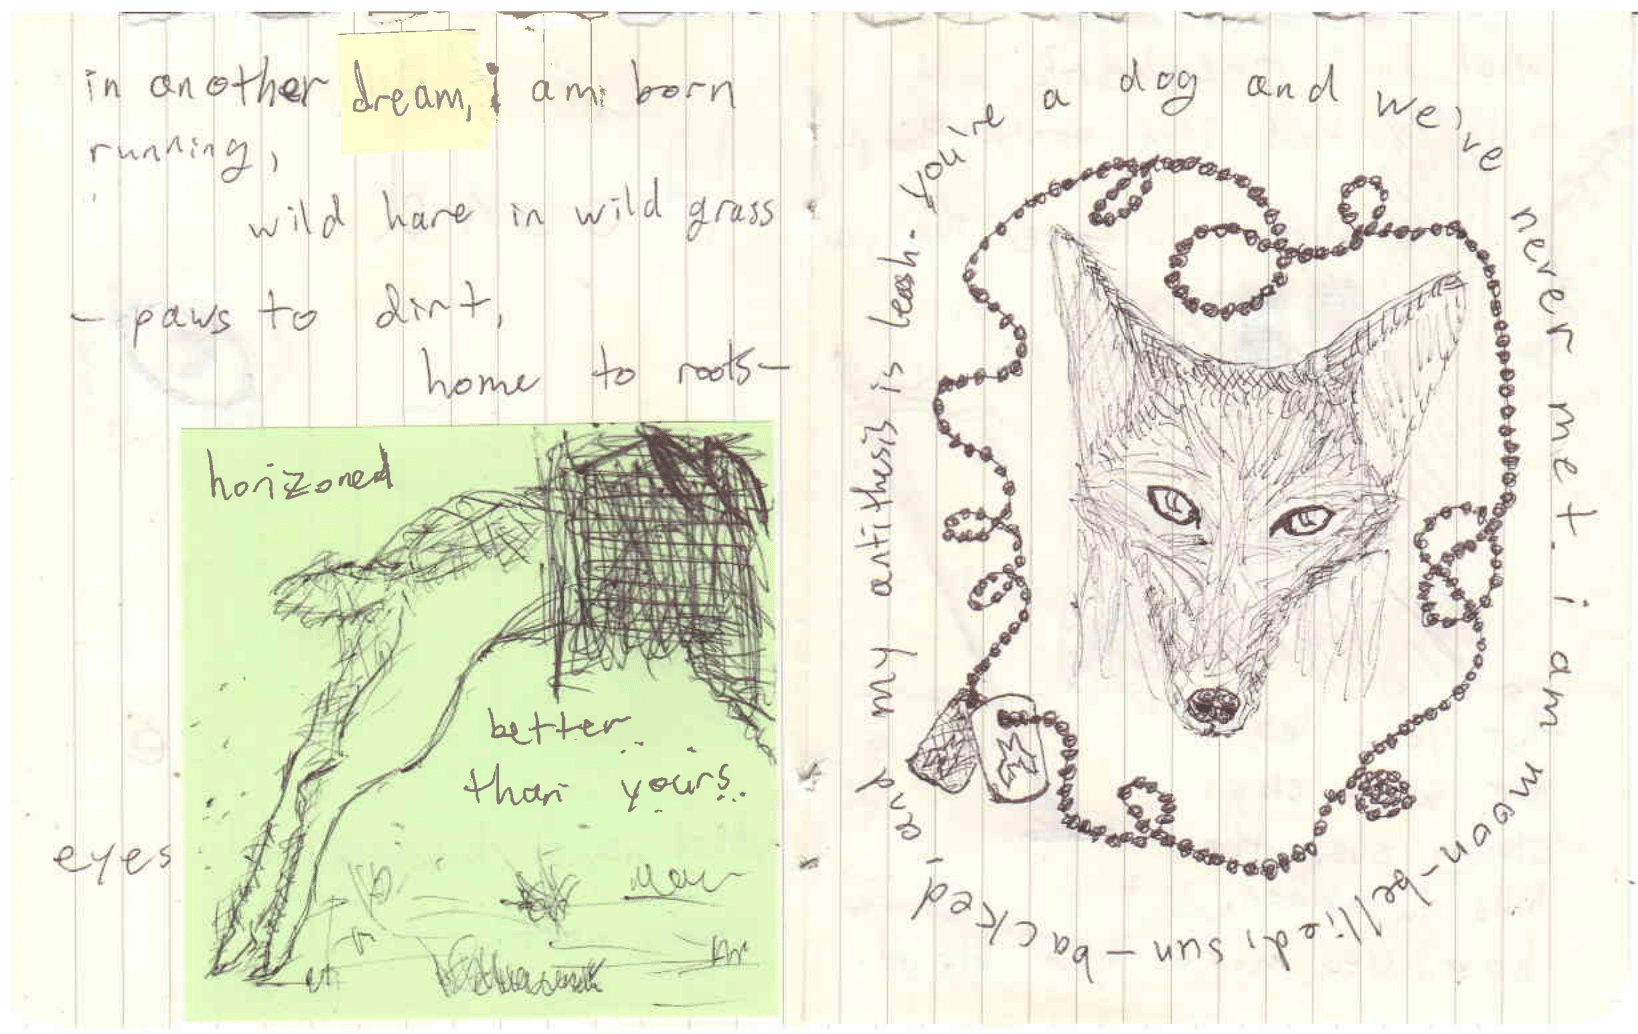 in another dream, i am born
running,
wild hare in wild grass
- paws to dirt,
home to roots-
eyes
horizoned
better
than yours.
you're a dog and we've never met. i am moon-bellied, sun-backed, and my antithesis is leash.